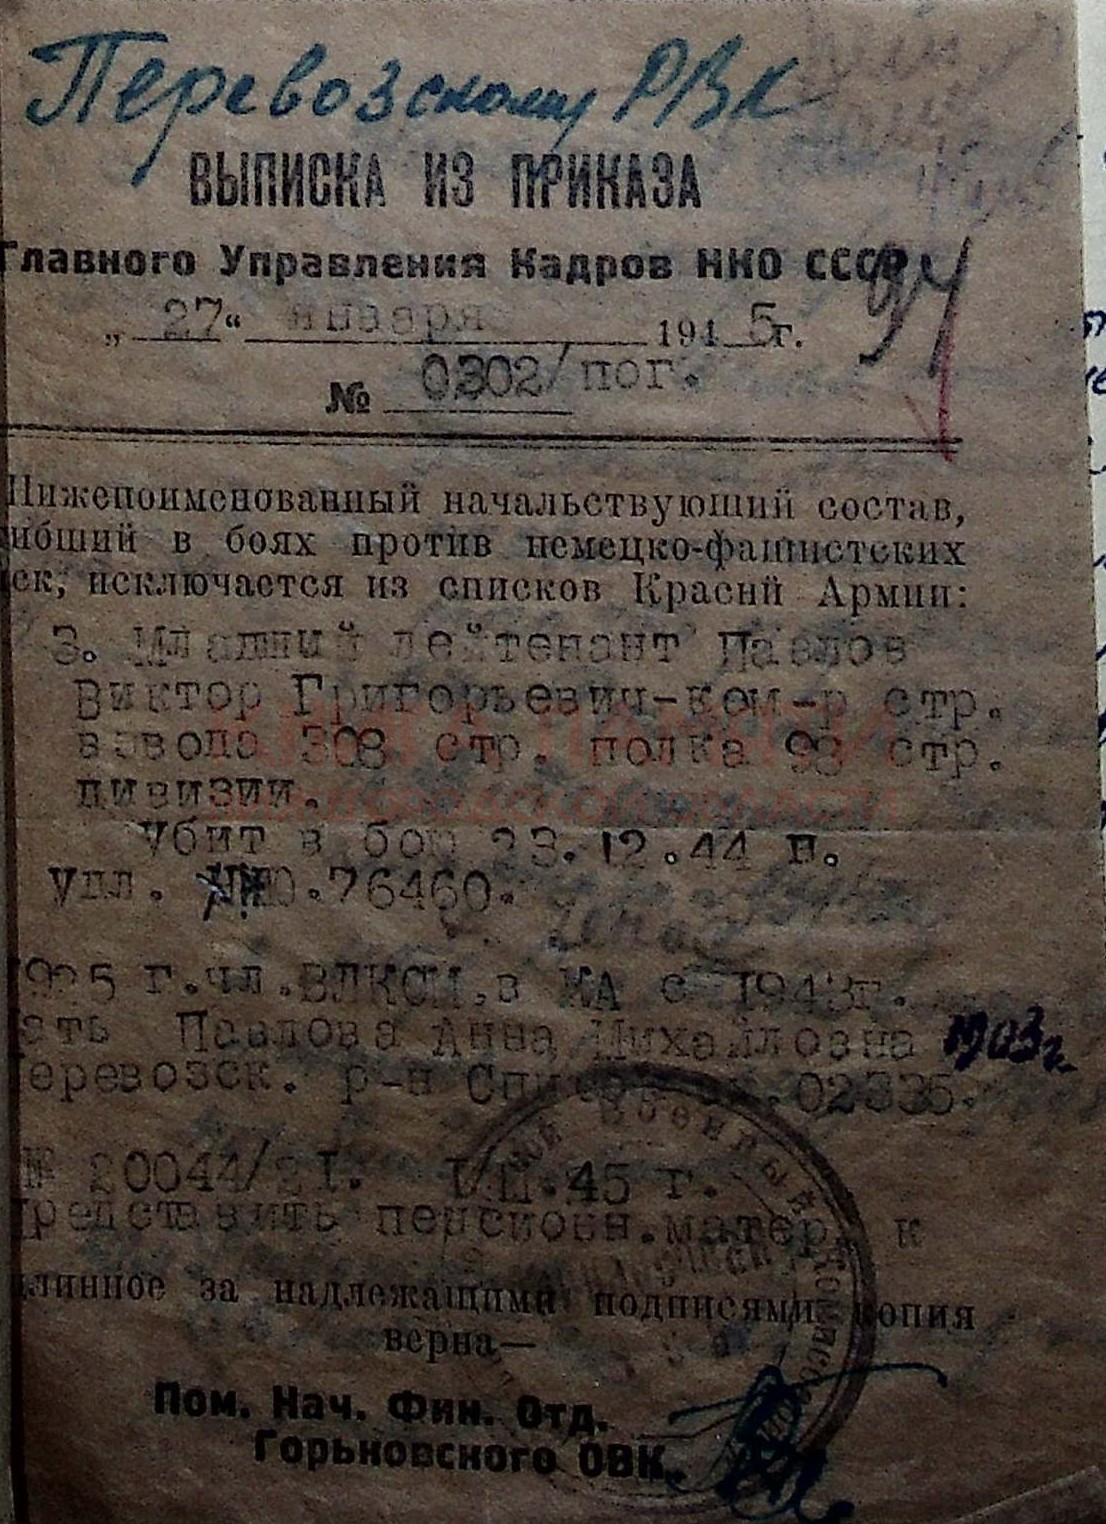 Перевозскому РВК
ВЫПИСКА ИЗ ПРИКАЗА
Главного Управления Кадров НКО СССР
94
„ 27 “ января 1945 г.
№ 0302/пог.
Нижепоименованный начальствующий состав,
ибший в боях против немецко-фашистских
ск, исключается из списков Красий Армии:
3. Младший лейтенант Павлов
Виктор Григорьевич-ком-р стр.
взвода 308 стр. полка 98 стр.
дивизии.
Убит в бою 23.12.44 г.
упл. 76460.
925 г.чл.ВЛКСМ,в КА с 1943г.
ать Павлова Анна Михайловна 1903 г.
еревозск. р-н 02335.
№ 20044/21. 1/II.45 г.
редставить пенсионн.матер. к
длинное за надлежащими подписями копия
верна—
Пом. Нач. Фин. Отд.
Горьковского ОВК.